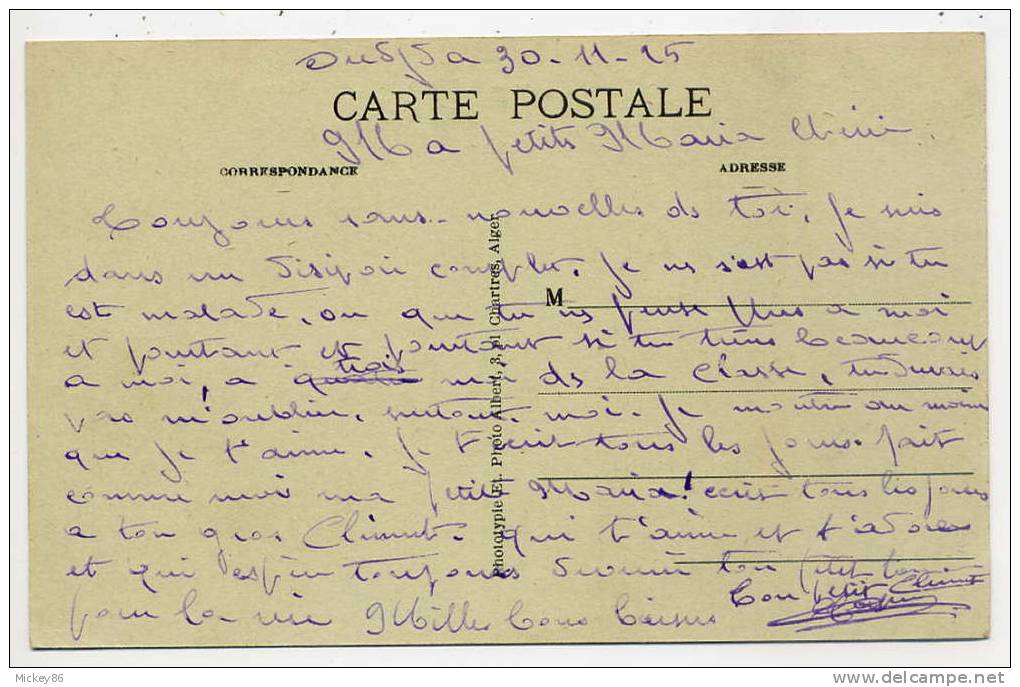 Oudjda 30-11-25
CARTE POSTALE
Ma petite Maria chérie
CORRESPONDANCE
ADRESSE
Toujours sans nouvelles de toi, je suis
dans un complet. Je ne s'est pas si tu
M
est malade, ou que tu ne pense plus a moi
et pourtant et pourtant si tu tiens beaucoup
a moi, a trois mois de la Classe, tu devrais
pas m'oublier, surtout moi. Je montre au moins
que je t'aime, je t'écrit tous les jours. fait
comme moi ma petite Maria! écrit tous les jours
a ton gros Climent. qui t'aime et t'adore
et qui espère toujours devenir ton petit
pour la vie Mille bons baisers
Ton petit Climent
Phototypie Et. Photo Albert, 3, pl Chartres, Alger
Mickey86
delcampe.net